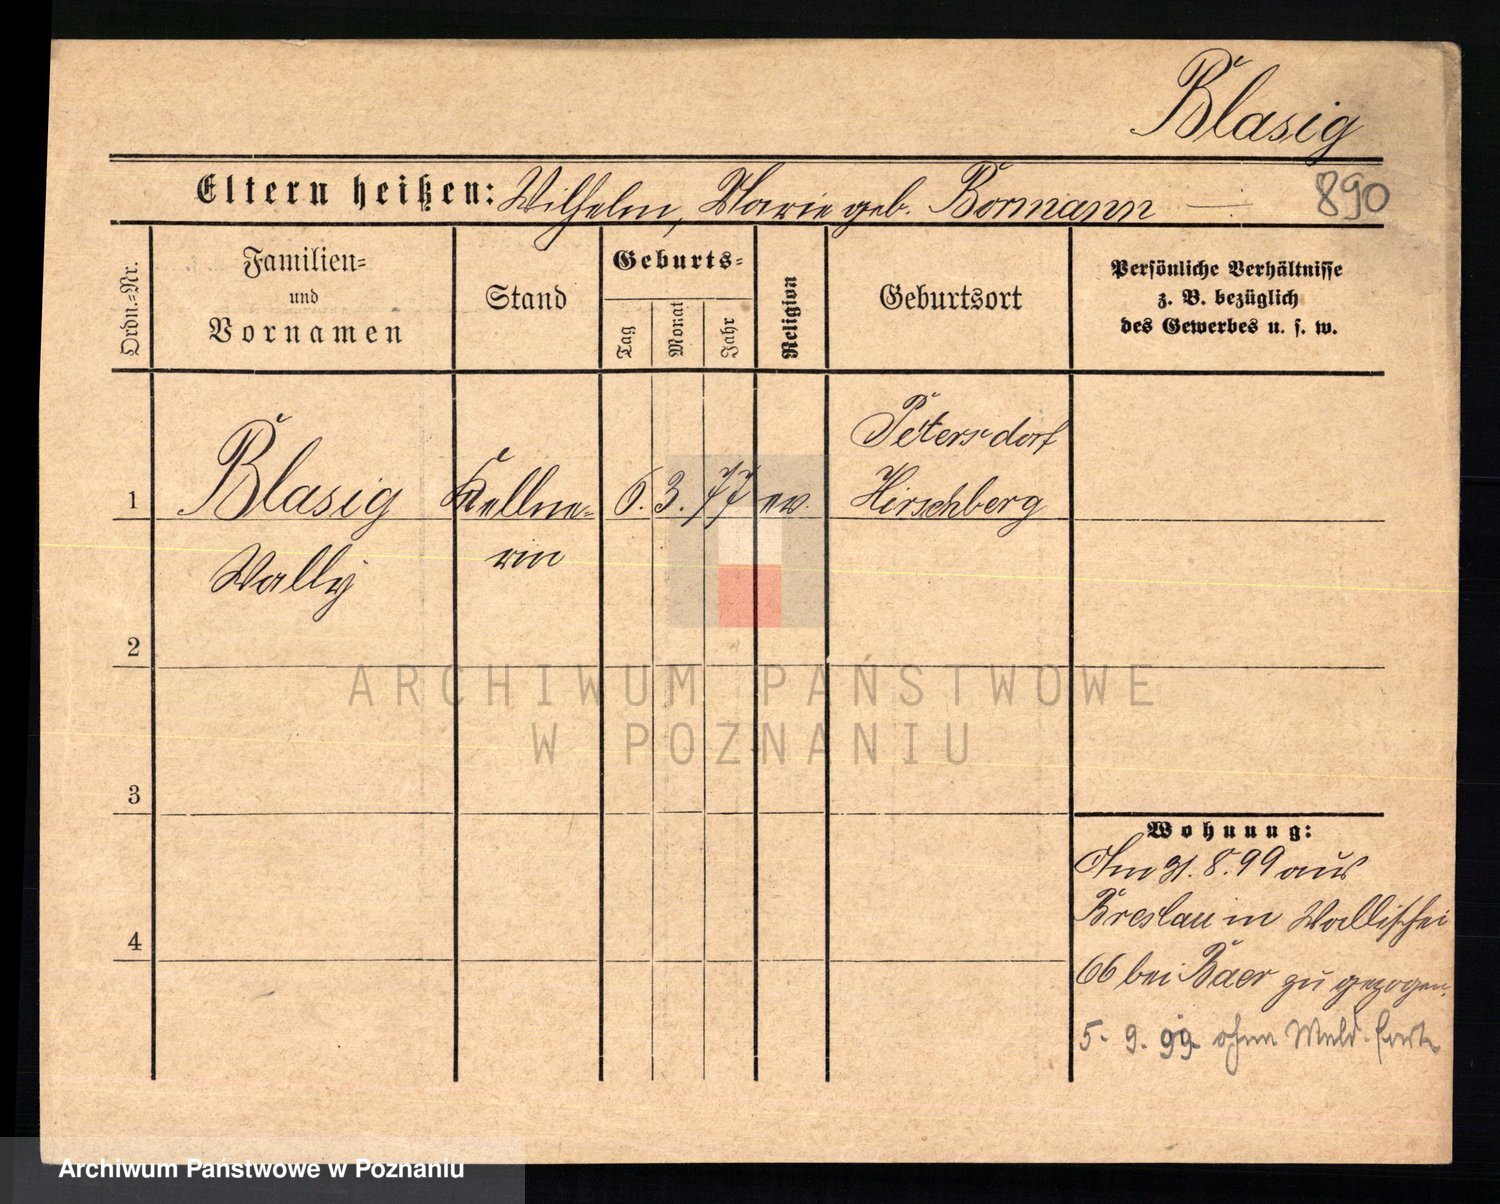 Blasig
Eltern heißen: Wilhelm, Marie geb. Bormann
890
Ordn.=Nr.
Familien=
und
Vornamen
Stand
Geburts=
Tag
Monat
Jahr
Religion
Geburtsort
Persönliche Verhältnisse
z. B. bezüglich
des Gewerbes u. s. w.
1
Blasig
Wally
Kellne=
rin
6. 3. 77
ev.
Petersdorf
Hirschberg
2
3
4
Wohnung:
Am 31. 8. 99 aus
Breslau in Wallischei
66 bei Baer zu gezogen.
5. 9. 99 ohne Meld.
ARCHIWUM PAŃSTWOWE
W POZNANIU
Archiwum Państwowe w Poznaniu